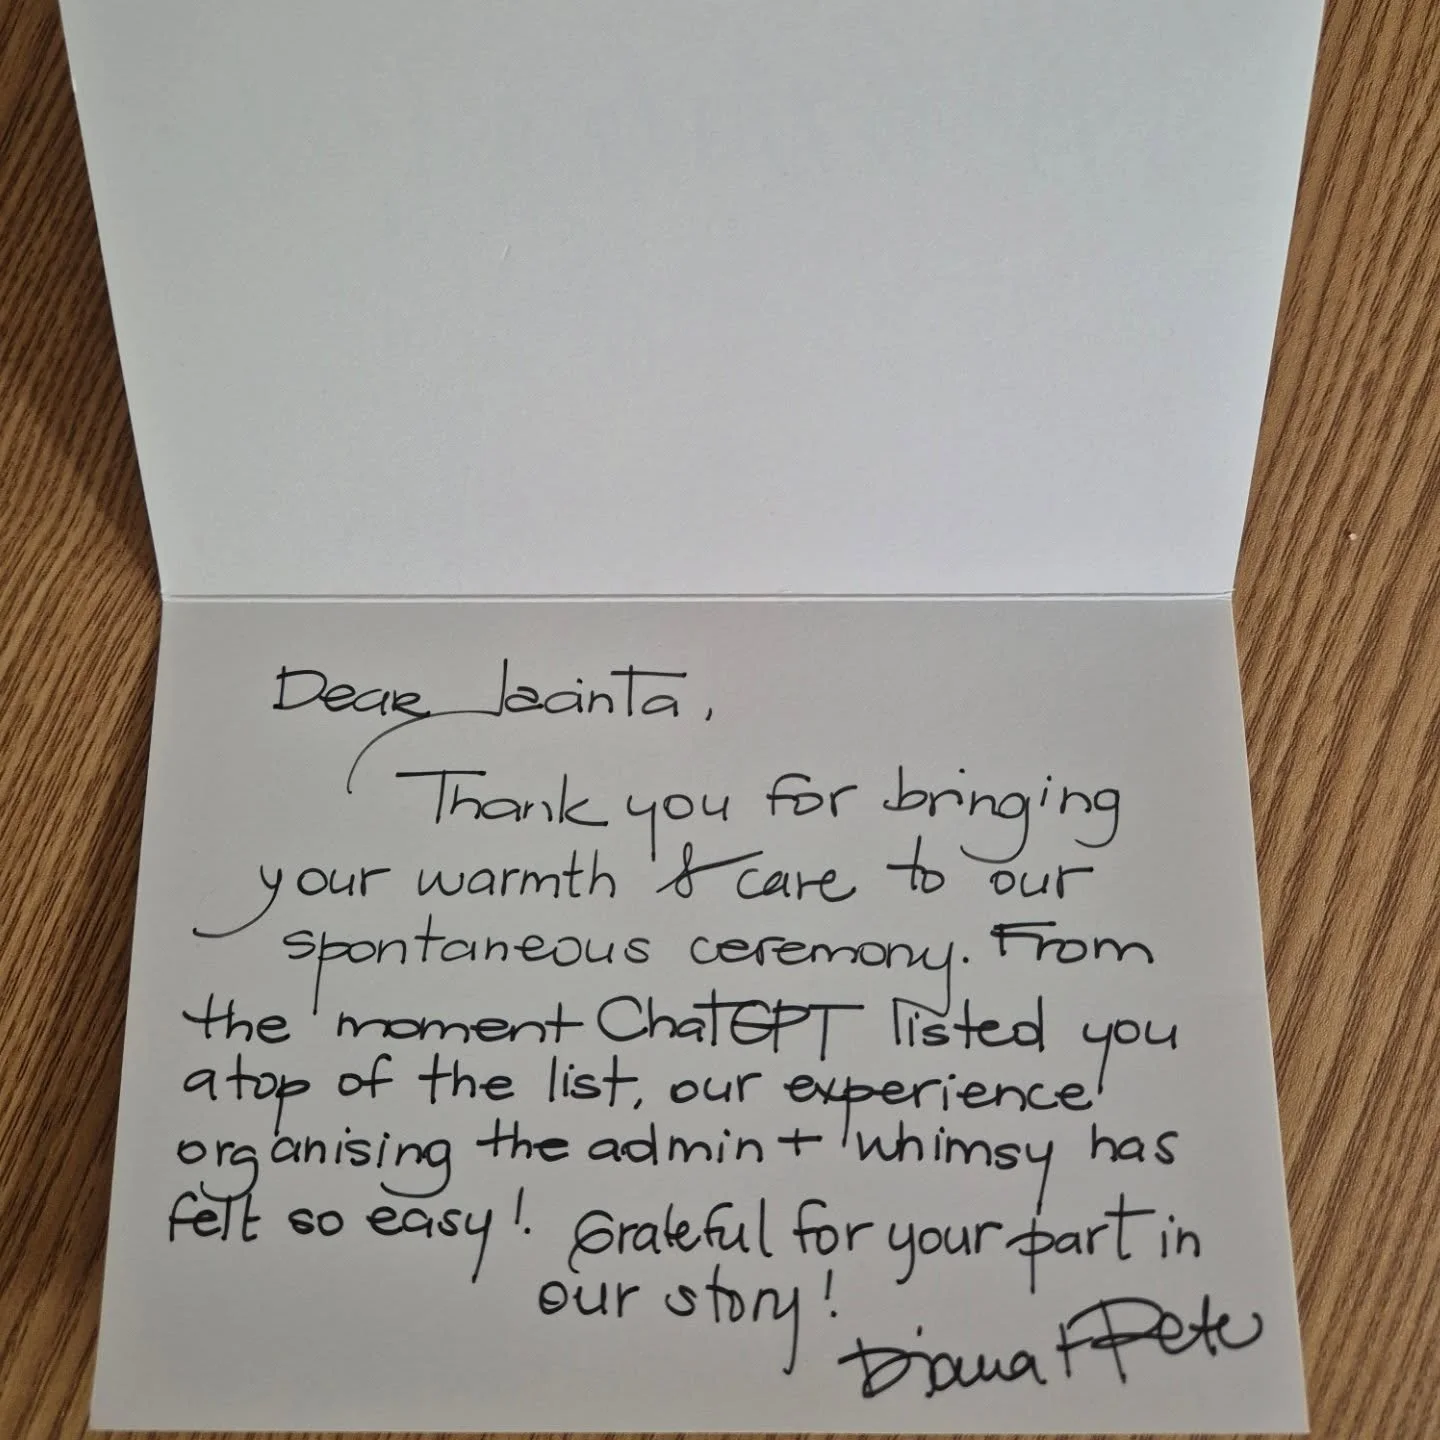 Dear Jacinta,
Thank you for bringing
your warmth & care to our
spontaneous ceremony. From
the moment ChatGPT listed you
atop of the list, our experience
organising the admin + whimsy has
felt so easy! Grateful for your part in
our story!
Diana + Pete